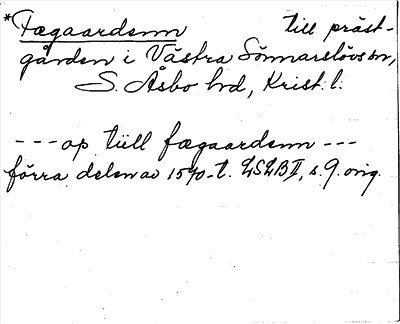 *Fægaardenn till präst-
gården i Västra Sönnarslövs sn,
S. Åsbo hd, Krist. l.
---op tiill fægaardenn---
förra delen av 1570-t. LSLB II, s. 9. orig.